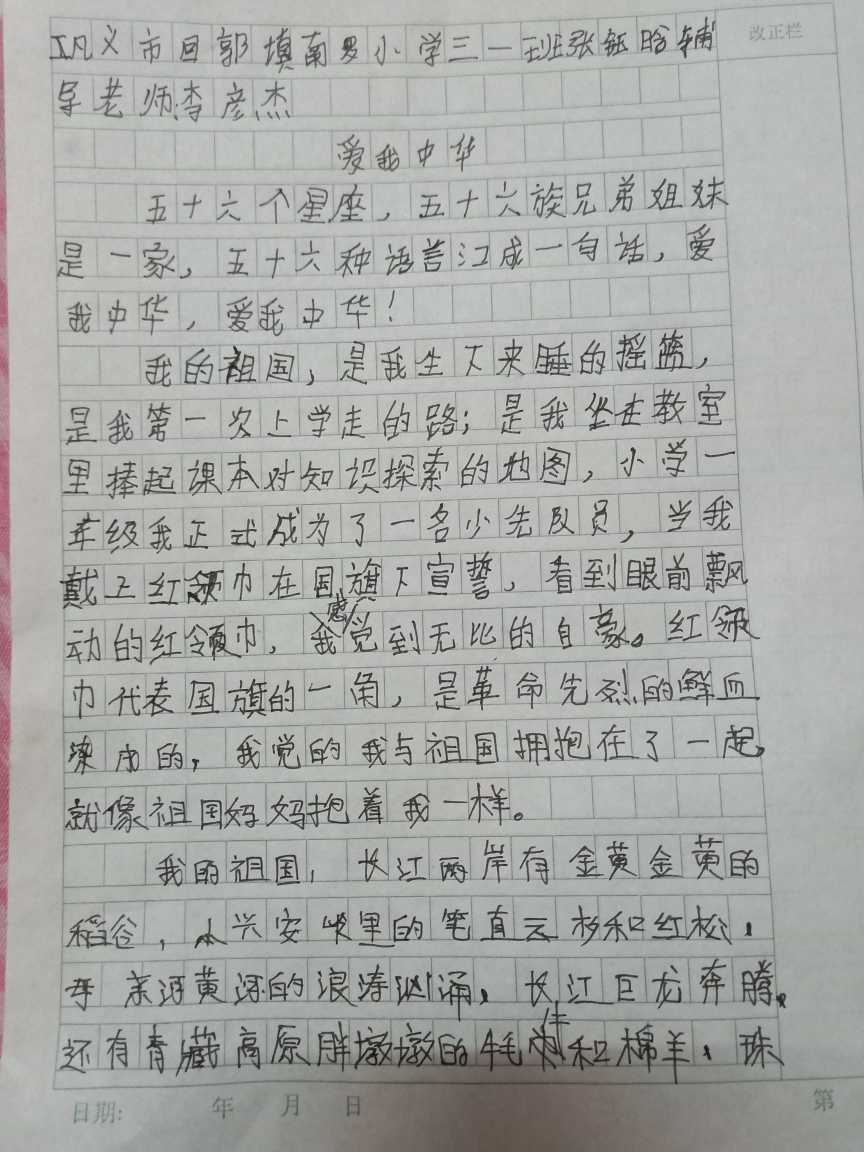 巩义市回郭填南罗小学三一班张钰晗辅
改正栏
导老师:李彦杰
爱我中华
五十六个星座，五十六族兄弟姐妹
是一家，五十六种语言汇成一句话，爱
我中华，爱我中华！
我的祖国，是我生下来睡的摇篮，
是我第一次上学走的路；是我坐在教室
里捧起课本对知识探索的地图，小学一
年级我正式成为了一名少先队员，当我
戴上红领巾在国旗下宣誓，看到眼前飘
动的红领巾，我感觉到无比的自豪。红领
巾代表国旗的一角，是革命先烈的鲜血
染成的，我觉的我与祖国拥抱在了一起，
就像祖国妈妈抱着我一样。
我的祖国，长江两岸有金黄金黄的
稻谷，大兴安岭里的笔直云杉和红松，
母亲河黄河的浪涛汹涌，长江巨龙奔腾。
还有青藏高原胖墩墩的牦牛和棉羊，珠
日期: 年 月 日
第